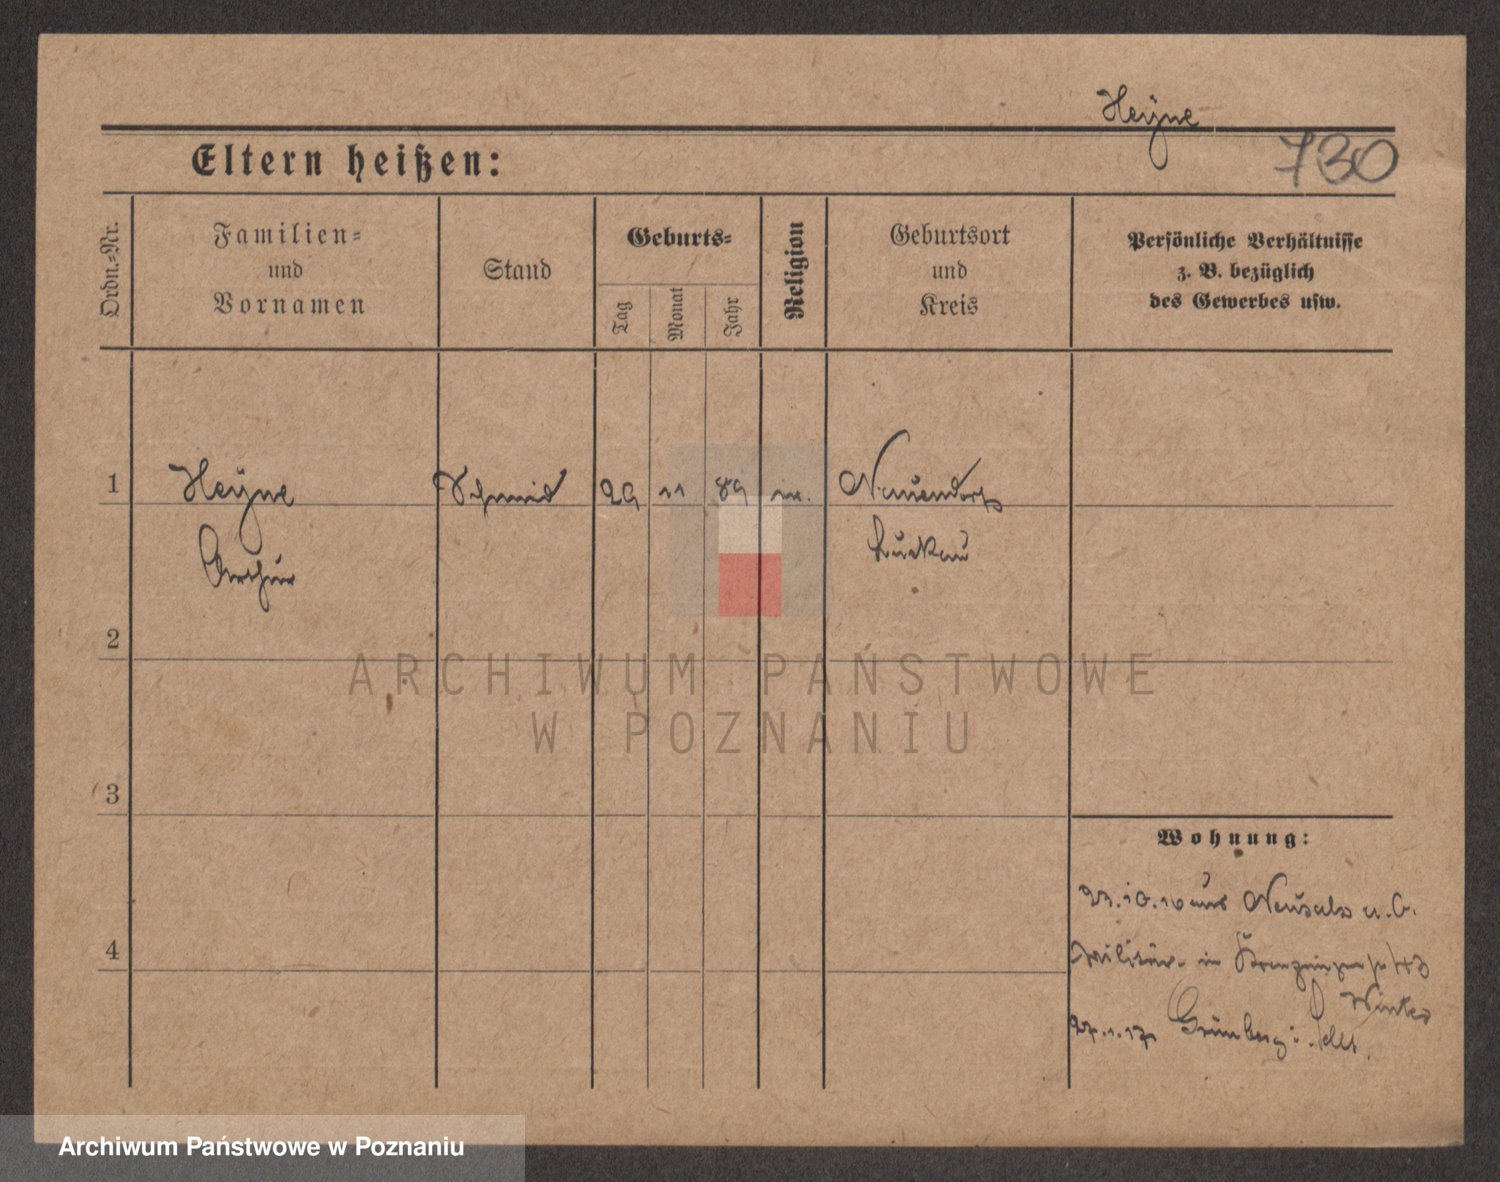 Heyne
730
Eltern heißen:
Ordn.-Nr.
Familien-
und
Vornamen
Stand
Geburts-
Tag
Monat
Jahr
Religion
Geburtsort
und
Kreis
Persönliche Verhältnisse
z. B. bezüglich
des Gewerbes usw.
1 Heyne Schmied 29 11 89 Nauendorf
Arthur Luckau
2
3
4
Wohnung:
23.10.16 aus Neusalz a. O.
Militär. in
Winkler
27.1.17 Grünberg i. Schl.
ARCHIWUM PAŃSTWOWE
W POZNANIU
Archiwum Państwowe w Poznaniu